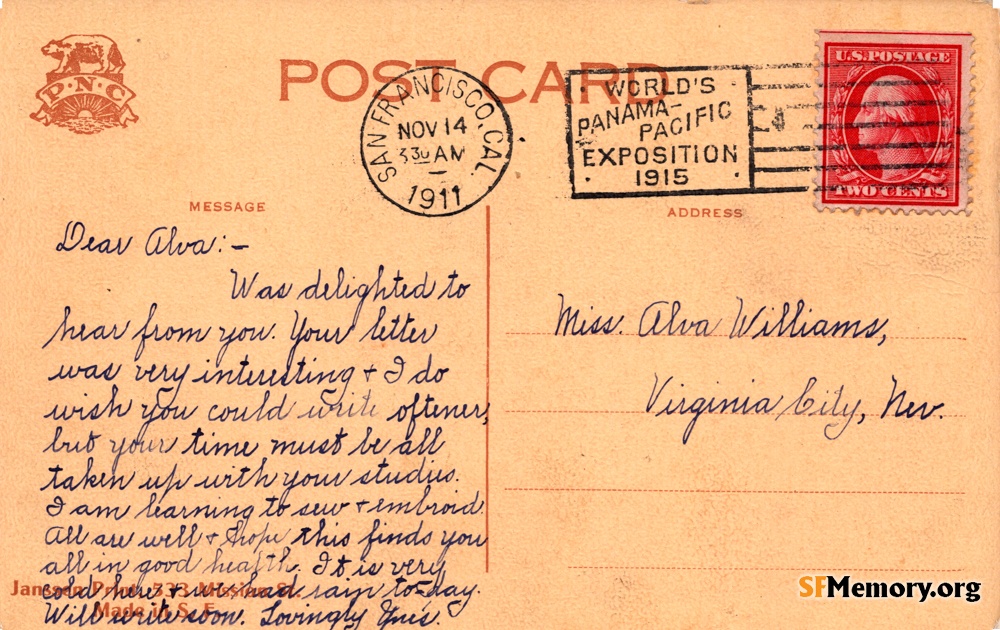 P·N·C
POST CARD
SAN FRANCISCO, CAL.
NOV 14
3 30 AM
1911
WORLD'S
PANAMA-
PACIFIC
EXPOSITION
1915
U.S. POSTAGE
TWO CENTS
MESSAGE
ADDRESS
Dear Alva:-
Was delighted to
hear from you. Your letter
was very interesting + I do
wish you could write oftener,
but your time must be all
taken up with your studies.
I am learning to sew + embroid.
All are well + hope this finds you
all in good health. It is very
cold here + we had rain to-day.
Will write soon. Lovingly
Miss. Alva Williams,
Virginia City, Nev.
Janssen Print. 533 Mission S.
Made in S. F.
SFMemory.org